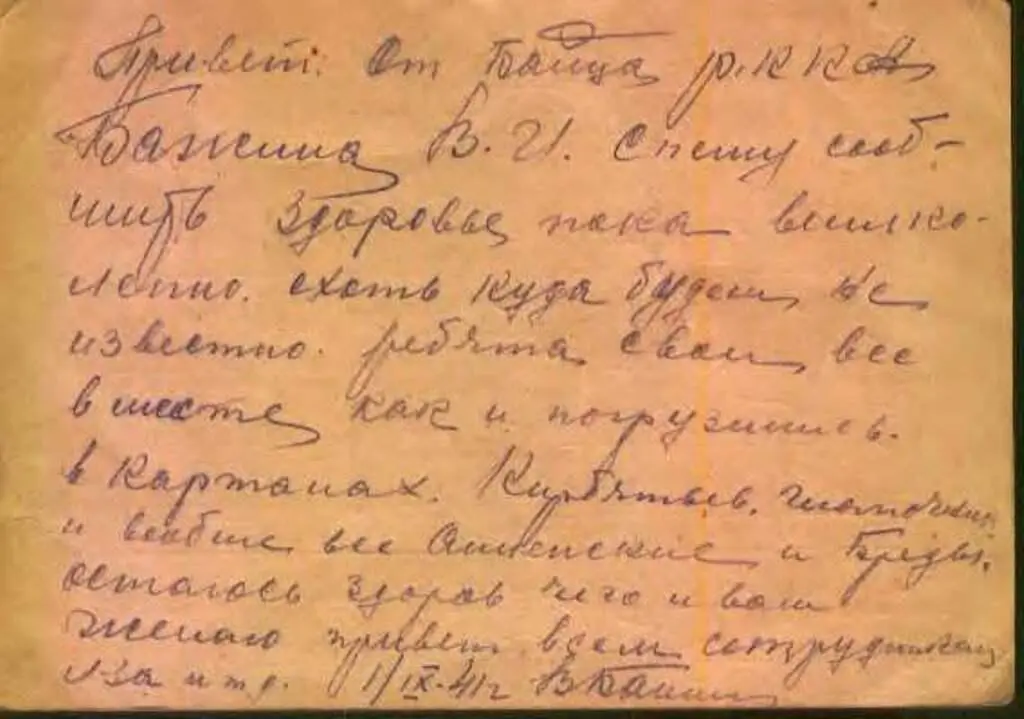 Привет: От Байца Р.К.К.А
Бажина В. И. Спешу сооб-
щить здоровье пока велико-
лепно. ехать куда будем не
известно. ребята свои все
вместе как и погрузились.
в Карталах. Кирбятьев.
и вообще все Атенские и Бреды.
остаюсь здоров чего и вам
желаю привет всем сотрудникам
и т.д. 1/IX-41г